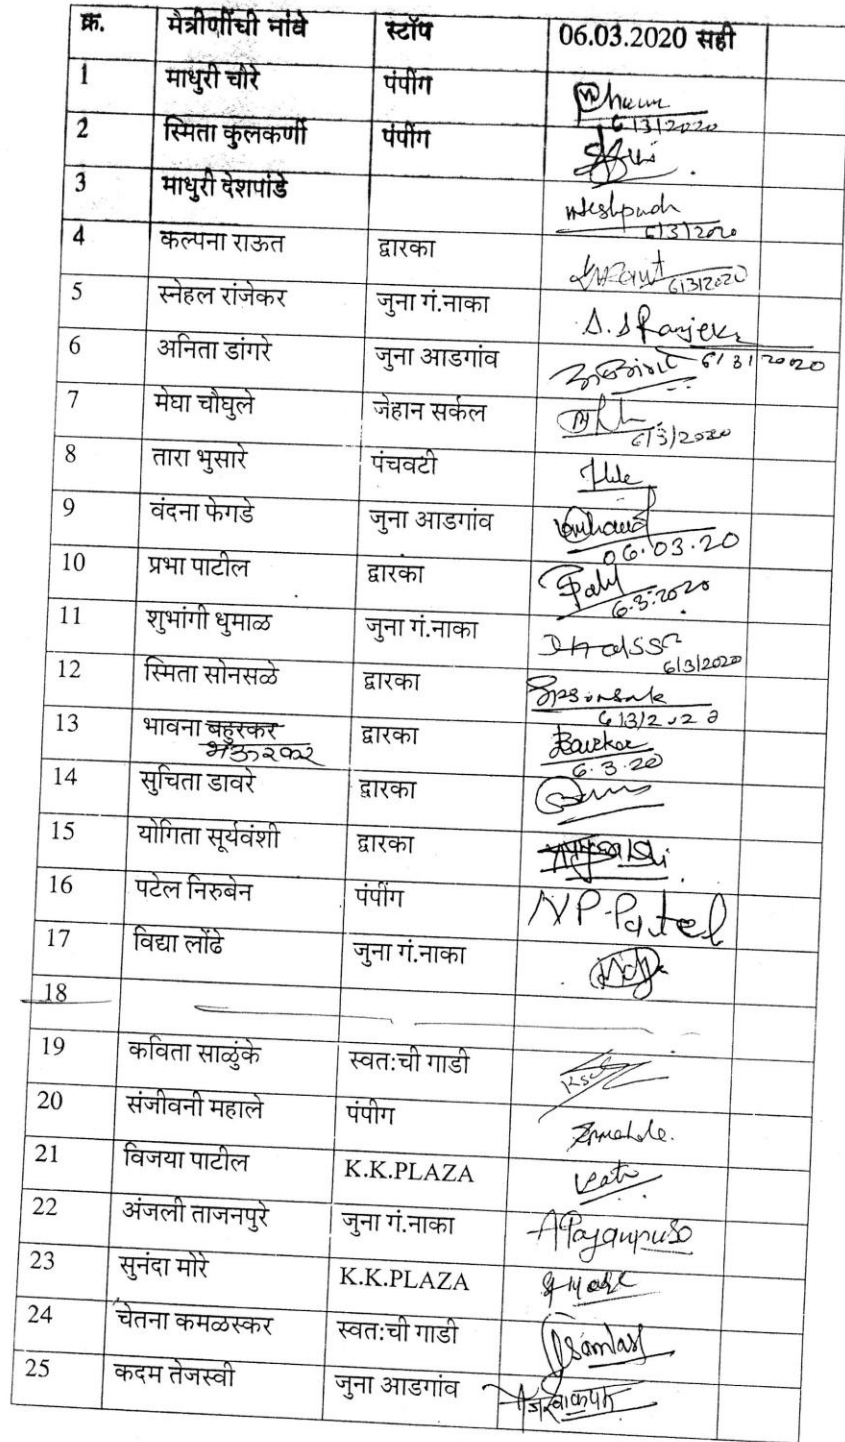 क्र. मैत्रीणींची नांवे स्टॉप 06.03.2020 सही
1 माधुरी चौरे पंपींग
6/3/2020
2 स्मिता कुलकर्णी पंपींग
3 माधुरी देशपांडे
6/3/2020
4 कल्पना राऊत द्वारका
6/3/2020
5 स्नेहल रांजेकर जुना गं.नाका
6 अनिता डांगरे जुना आडगांव 6/3/2020
7 मेघा चौघुले जेहान सर्कल
6/3/2020
8 तारा भुसारे पंचवटी
9 वंदना फेगडे जुना आडगांव
06.03.20
10 प्रभा पाटील द्वारका
6.3.2020
11 शुभांगी धुमाळ जुना गं.नाका
6/3/2020
12 स्मिता सोनसळे द्वारका
6/3/2020
13 भावना बहुरकर द्वारका
भऊरकर 6.3.20
14 सुचिता डावरे द्वारका
15 योगिता सूर्यवंशी द्वारका
16 पटेल निरुबेन पंपींग NP.Patel
17 विद्या लोंढे जुना गं.नाका
18
19 कविता साळुंके स्वत:ची गाडी
20 संजीवनी महाले पंपीग
21 विजया पाटील K.K.PLAZA
22 अंजली ताजनपुरे जुना गं.नाका
23 सुनंदा मोरे K.K.PLAZA
24 चेतना कमळस्कर स्वत:ची गाडी
25 कदम तेजस्वी जुना आडगांव